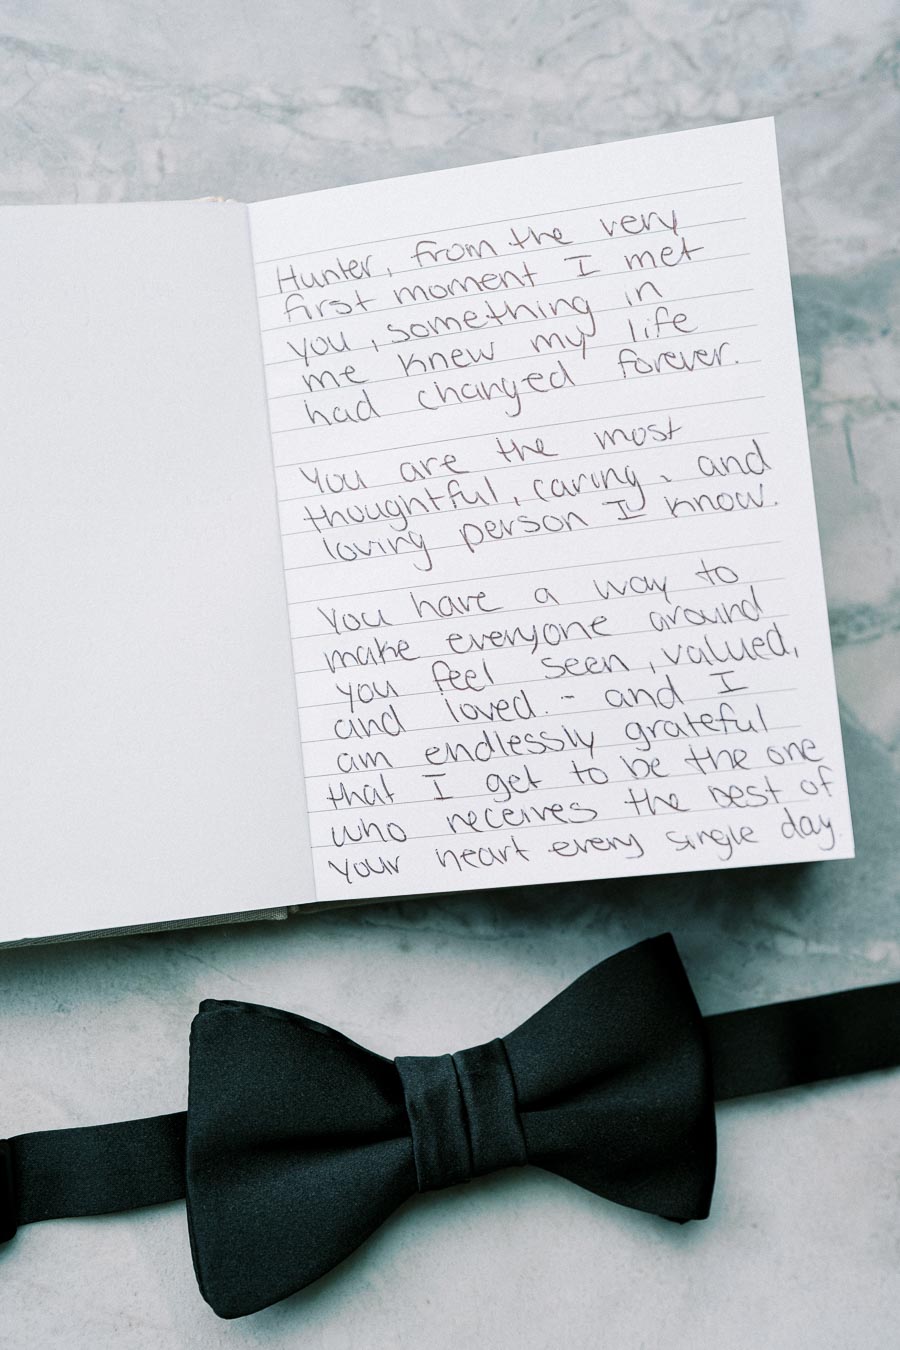 Hunter, from the very
first moment I met
you, something in
me knew my life
had changed forever.
You are the most
thoughtful, caring, and
loving person I know.
You have a way to
make everyone around
you feel seen, valued,
and loved. - and I
am endlessly grateful
that I get to be the one
who receives the best of
your heart every single day.